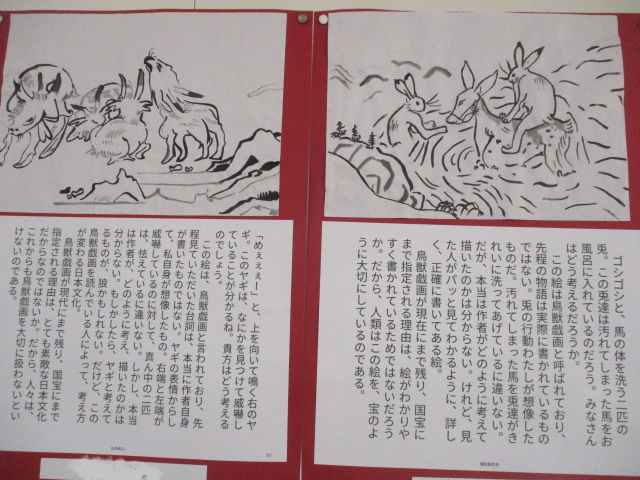 ゴシゴシと、馬の体を洗う二匹の
兎。この兎達は汚れてしまった馬をお
風呂に入れているのだろう。みなさん
はどう考えるだろうか。
この絵は鳥獣戯画と呼ばれており、
先程の物語は実際に書かれているもの
ではない。兎の行動わたしが想像した
ものだ。汚れてしまった馬を兎達がき
れいに洗ってあげているに違いない。
だが、本当は作者がどのように考えて
描いたのかは分からない。けれど、見
た人がパッと見てわかるように、詳し
く、正確に書いてある絵。
鳥獣戯画が現在にまで残り、国宝に
まで指定される理由は、絵がわかりや
すく書かれているためではないだろう
か。だから、人類はこの絵を、宝のよ
うに大切にしているのである。
「めぇぇぇー」と、上を向いて鳴く右のヤ
ギ。このヤギは、なにかを見つけて威嚇し
ていることが分かるね。貴方はどう考える
のでしょう。
この絵は、鳥獣戯画と言われており、先
程見ていただいた台詞は、本当に作者自身
が書いたものではない。ヤギの表情からし
て、私自身が想像したもの。右端と左端が
威嚇しているのに対して、真ん中の二匹
は、怯えているに違いない。しかし、本当
は作者が、どのように考え、描いたのかは
分からない。もしかしたら、ヤギと考えて
るものが、狼かもしれない。だけど、この
鳥獣戯画を読んでいる人によって、考え方
が変わる日本文化。
鳥獣戯画が現代にまで残り、国宝にまで
指定される理由は、とても素敵な日本文化
だからなのではないか。だから、人々は、
これからも鳥獣戯画を大切に扱わないとい
けないのである。